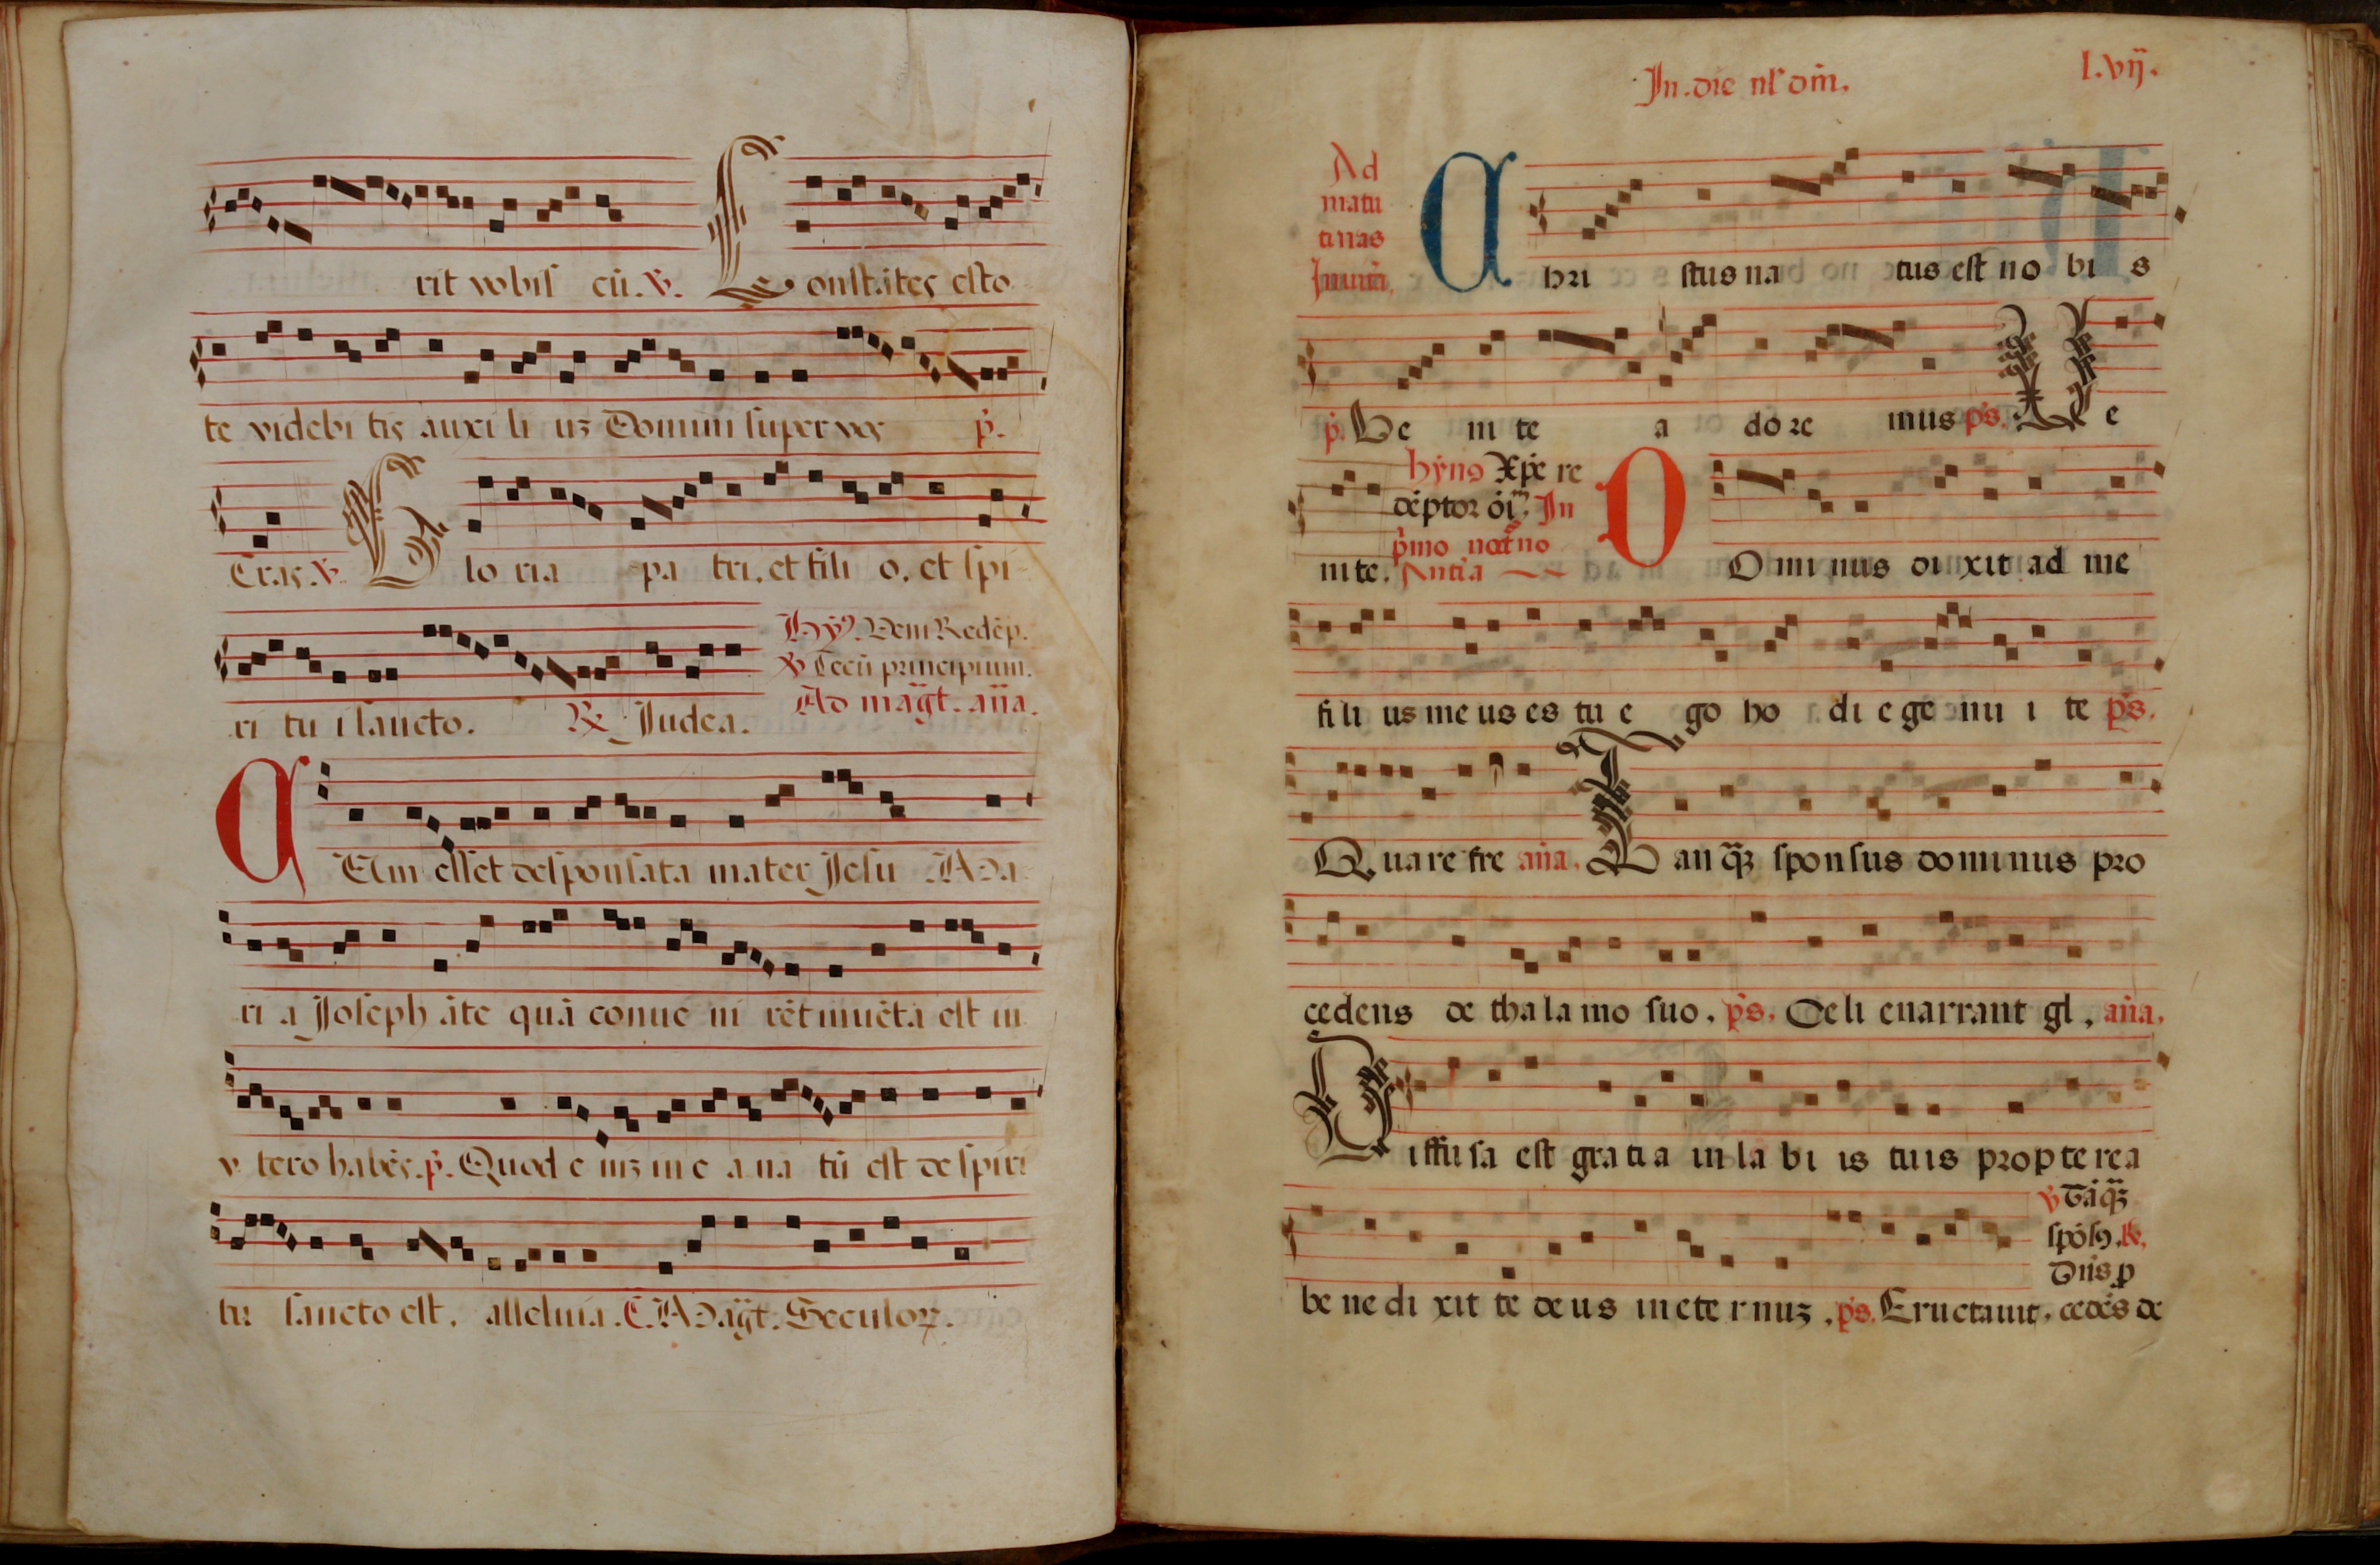 rit vobis cū. ℣. Constātes esto
te videbi tis auxi li uȝ Domini super vos p̄.
Cras. ℣. Glo ria pa tri. et fili o. et spi
Hỹ9. Veni Redēp.
℣ Tecū principium.
Ad mag̃t. añа.
ri tu i sancto. ℟ Judea.
CUm esset desponsata mater Jesu Ma
ri a Joseph āte quā conue ni rēt inuēta est in
v tero habēs. p̄. Quod e niȝ in e a na tū est de spiri
tu sancto est. alleluia. C. Mag̃t. Seculoꝝ.
In. die nr̄ dom̄. l.vij.
Ad
matu
tinas
Inuita.
Chri stus na tus est no bi s
p̄. Ve ni te a do re mus ps̄. Ve
hȳn9 Xp̄e re
dēptor oı̄m. In
p̄mo noct̄no
nite. Antı̄a Domi nus dixit ad me
fili us me us es tu e go ho di e ge nu i te ps̄.
Quare fre an̄a. Tan q̄ȝ sponsus dominus pro
cedens de thalamo suo. ps̄. Celi enarrant gl. an̄a.
Diffusa est gratia in la bi is tuis propterea
℣ Tāq̄ȝ
spōs9. ℟.
Dn̄s ꝓ
be ne di xit te deus in eternuȝ. ps̄. Eructauit. cedēs de